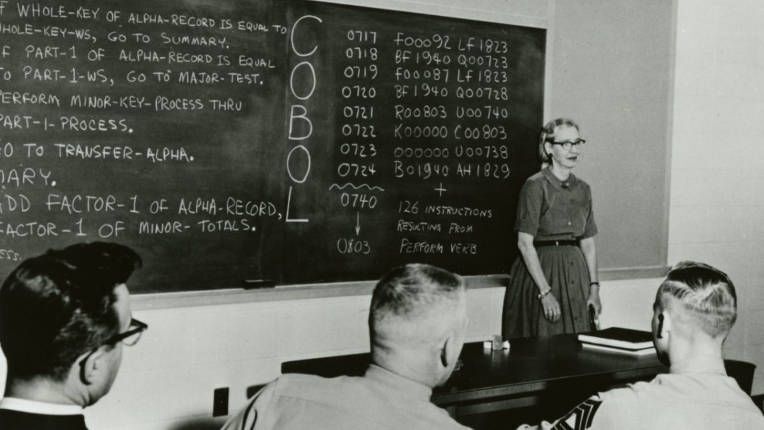 F WHOLE-KEY OF ALPHA-RECORD IS EQUAL TO
WHOLE-KEY-WS, GO TO SUMMARY.
F PART-1 OF ALPHA-RECORD IS EQUAL
TO PART-1-WS, GO TO MAJOR-TEST.
PERFORM MINOR-KEY-PROCESS THRU
PART-1-PROCESS.
GO TO TRANSFER-ALPHA.
MARY.
ADD FACTOR-1 OF ALPHA-RECORD,
FACTOR-1 OF MINOR-TOTALS.
ESS.
COBOL
0717 F00092 LF1823
0718 BF1940 Q00723
0719 F00087 LF1823
0720 BF1940 Q00728
0721 R00803 U00740
0722 K00000 C00803
0723 000000 U00738
0724 B01940 AH1829
+
0740 126 INSTRUCTIONS
RESULTING FROM
0803 PERFORM VERB